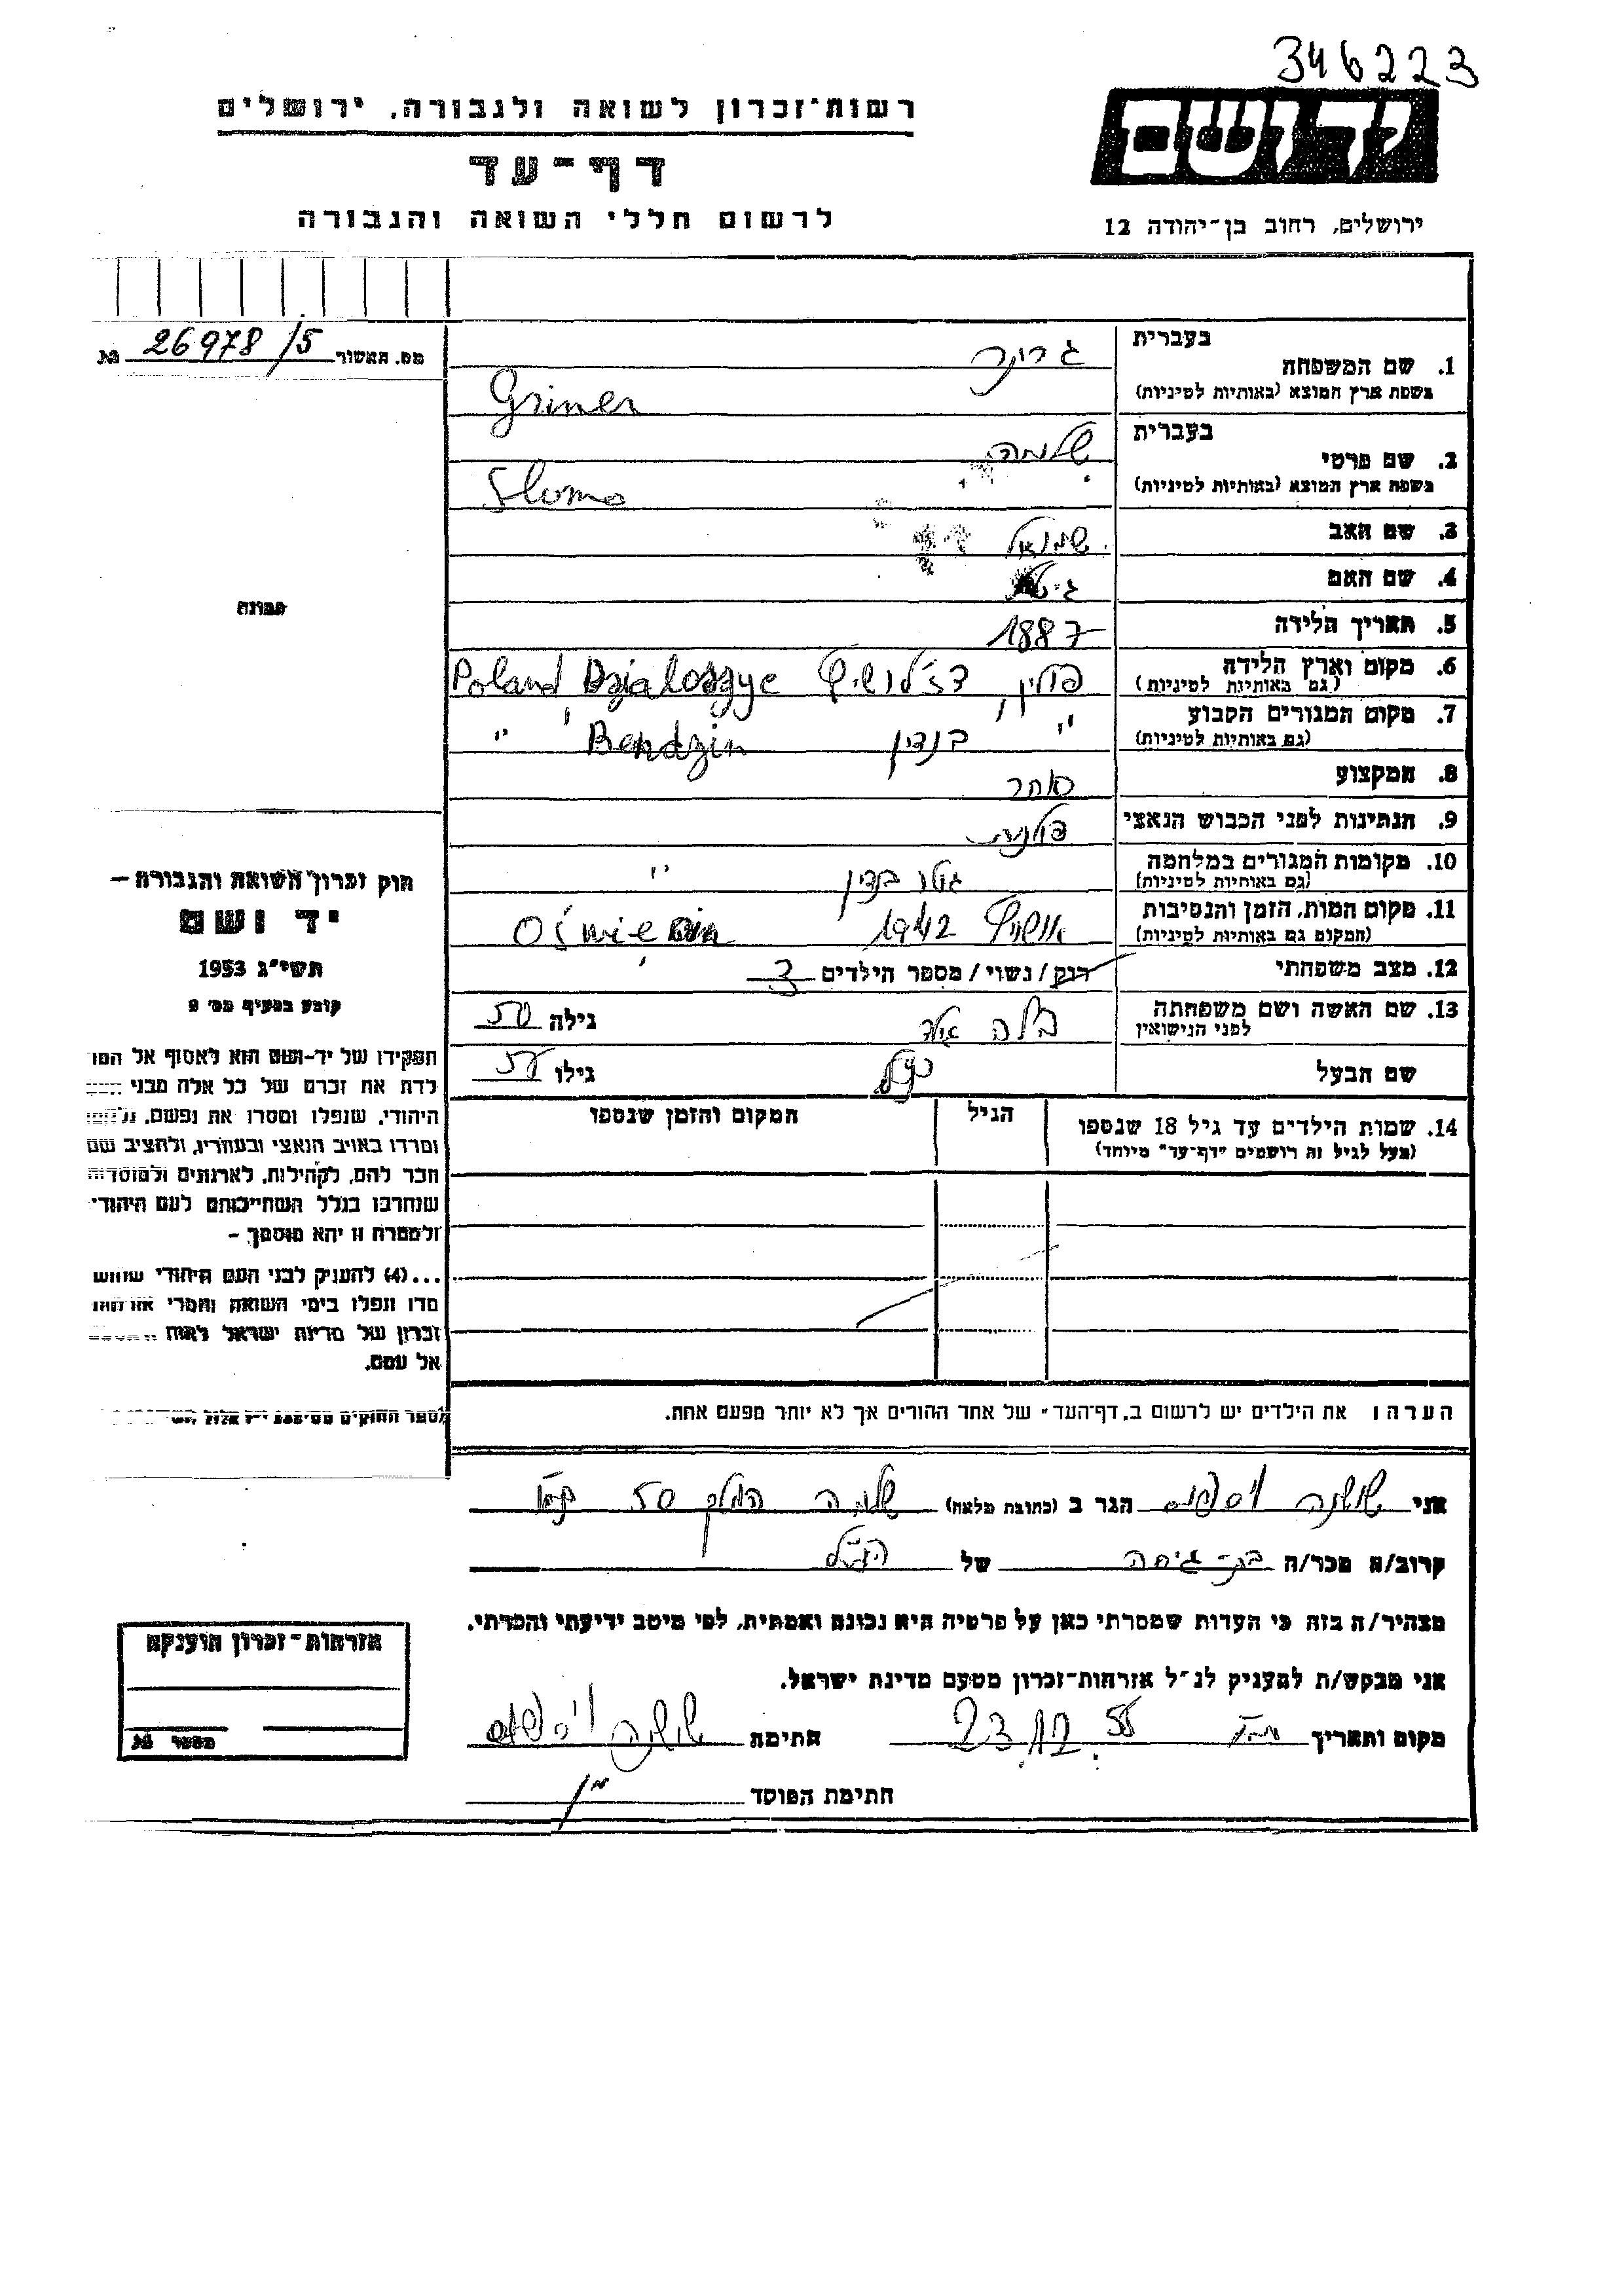 346223
יד ושם
רשות-זכרון לשואה ולגבורה, ירושלים
דף-עד
לרשום חללי השואה והגבורה
ירושלים, רחוב בן-יהודה 12
מס. האשור 26978/5 №
בעברית גרינר
1. שם המשפחה
בשפת ארץ המוצא (באותיות לטיניות) Griner
בעברית שלמה
2. שם פרטי
בשפת ארץ המוצא (באותיות לטיניות) Sloma
3. שם האב שמואל
4. שם האם
5. תאריך הלידה 1887
6. מקום וארץ הלידה פולין, Poland Dzialoszyc
(גם באותיות לטיניות)
7. מקום המגורים הקבוע " בנדין Bendzin "
(גם באותיות לטיניות)
8. המקצוע סוחר
9. הנתינות לפני הכבוש הנאצי פולנית
10. מקומות המגורים במלחמה גטו בנדין "
(גם באותיות לטיניות)
11. מקום המות, הזמן והנסיבות 1942
(המקום גם באותיות לטיניות)
12. מצב משפחתי רוק/נשוי/מספר הילדים 3
13. שם האשה ושם משפחתה בלה גילה 50
לפני הנישואין
שם הבעל גילו
14. שמות הילדים עד גיל 18 שנספו הגיל המקום והזמן שנספו
(מעל לגיל זה רושמים "דף-עד" מיוחד)
הערה: את הילדים יש לרשום ב„דף-העד" של אחד ההורים אך לא יותר מפעם אחת.
תמונה
חוק זכרון השואה והגבורה –
יד ושם
תשי"ג 1953
קובע בסעיף מס' 2
תפקידו של יד-ושם הוא לאסוף אל המו
לדת את זכרם של כל אלה מבני
היהודי, שנפלו ומסרו את נפשם, נלחמו
ומרדו באויב הנאצי ובעוזריו, ולהציב שם
וזכר להם, לקהילות, לארגונים ולמוסדות
שנחרבו בגלל השתייכותם לעם היהודי
ולמטרה זו יהא מוסמך –
...(4) להעניק לבני העם היהודי שהוש
מדו ונפלו בימי השואה והמרי אזרחות
זכרון של מדינת ישראל לאות
אל עמם.
אני שושנה הגר ב (כתובת מלאה) שלמה המלך 50
קרוב/ה מכר/ה בת-גיסה של הנ"ל
מצהיר/ה בזה כי העדות שמסרתי כאן על פרטיה היא נכונה ואמתית, לפי מיטב ידיעתי והכרתי.
אני מבקש/ת להעניק לנ"ל אזרחות-זכרון מטעם מדינת ישראל.
מקום ותאריך 23.12.55 חתימת שושנה
חתימת הפוסד
אזרחות-זכרון הוענקה
מספר №